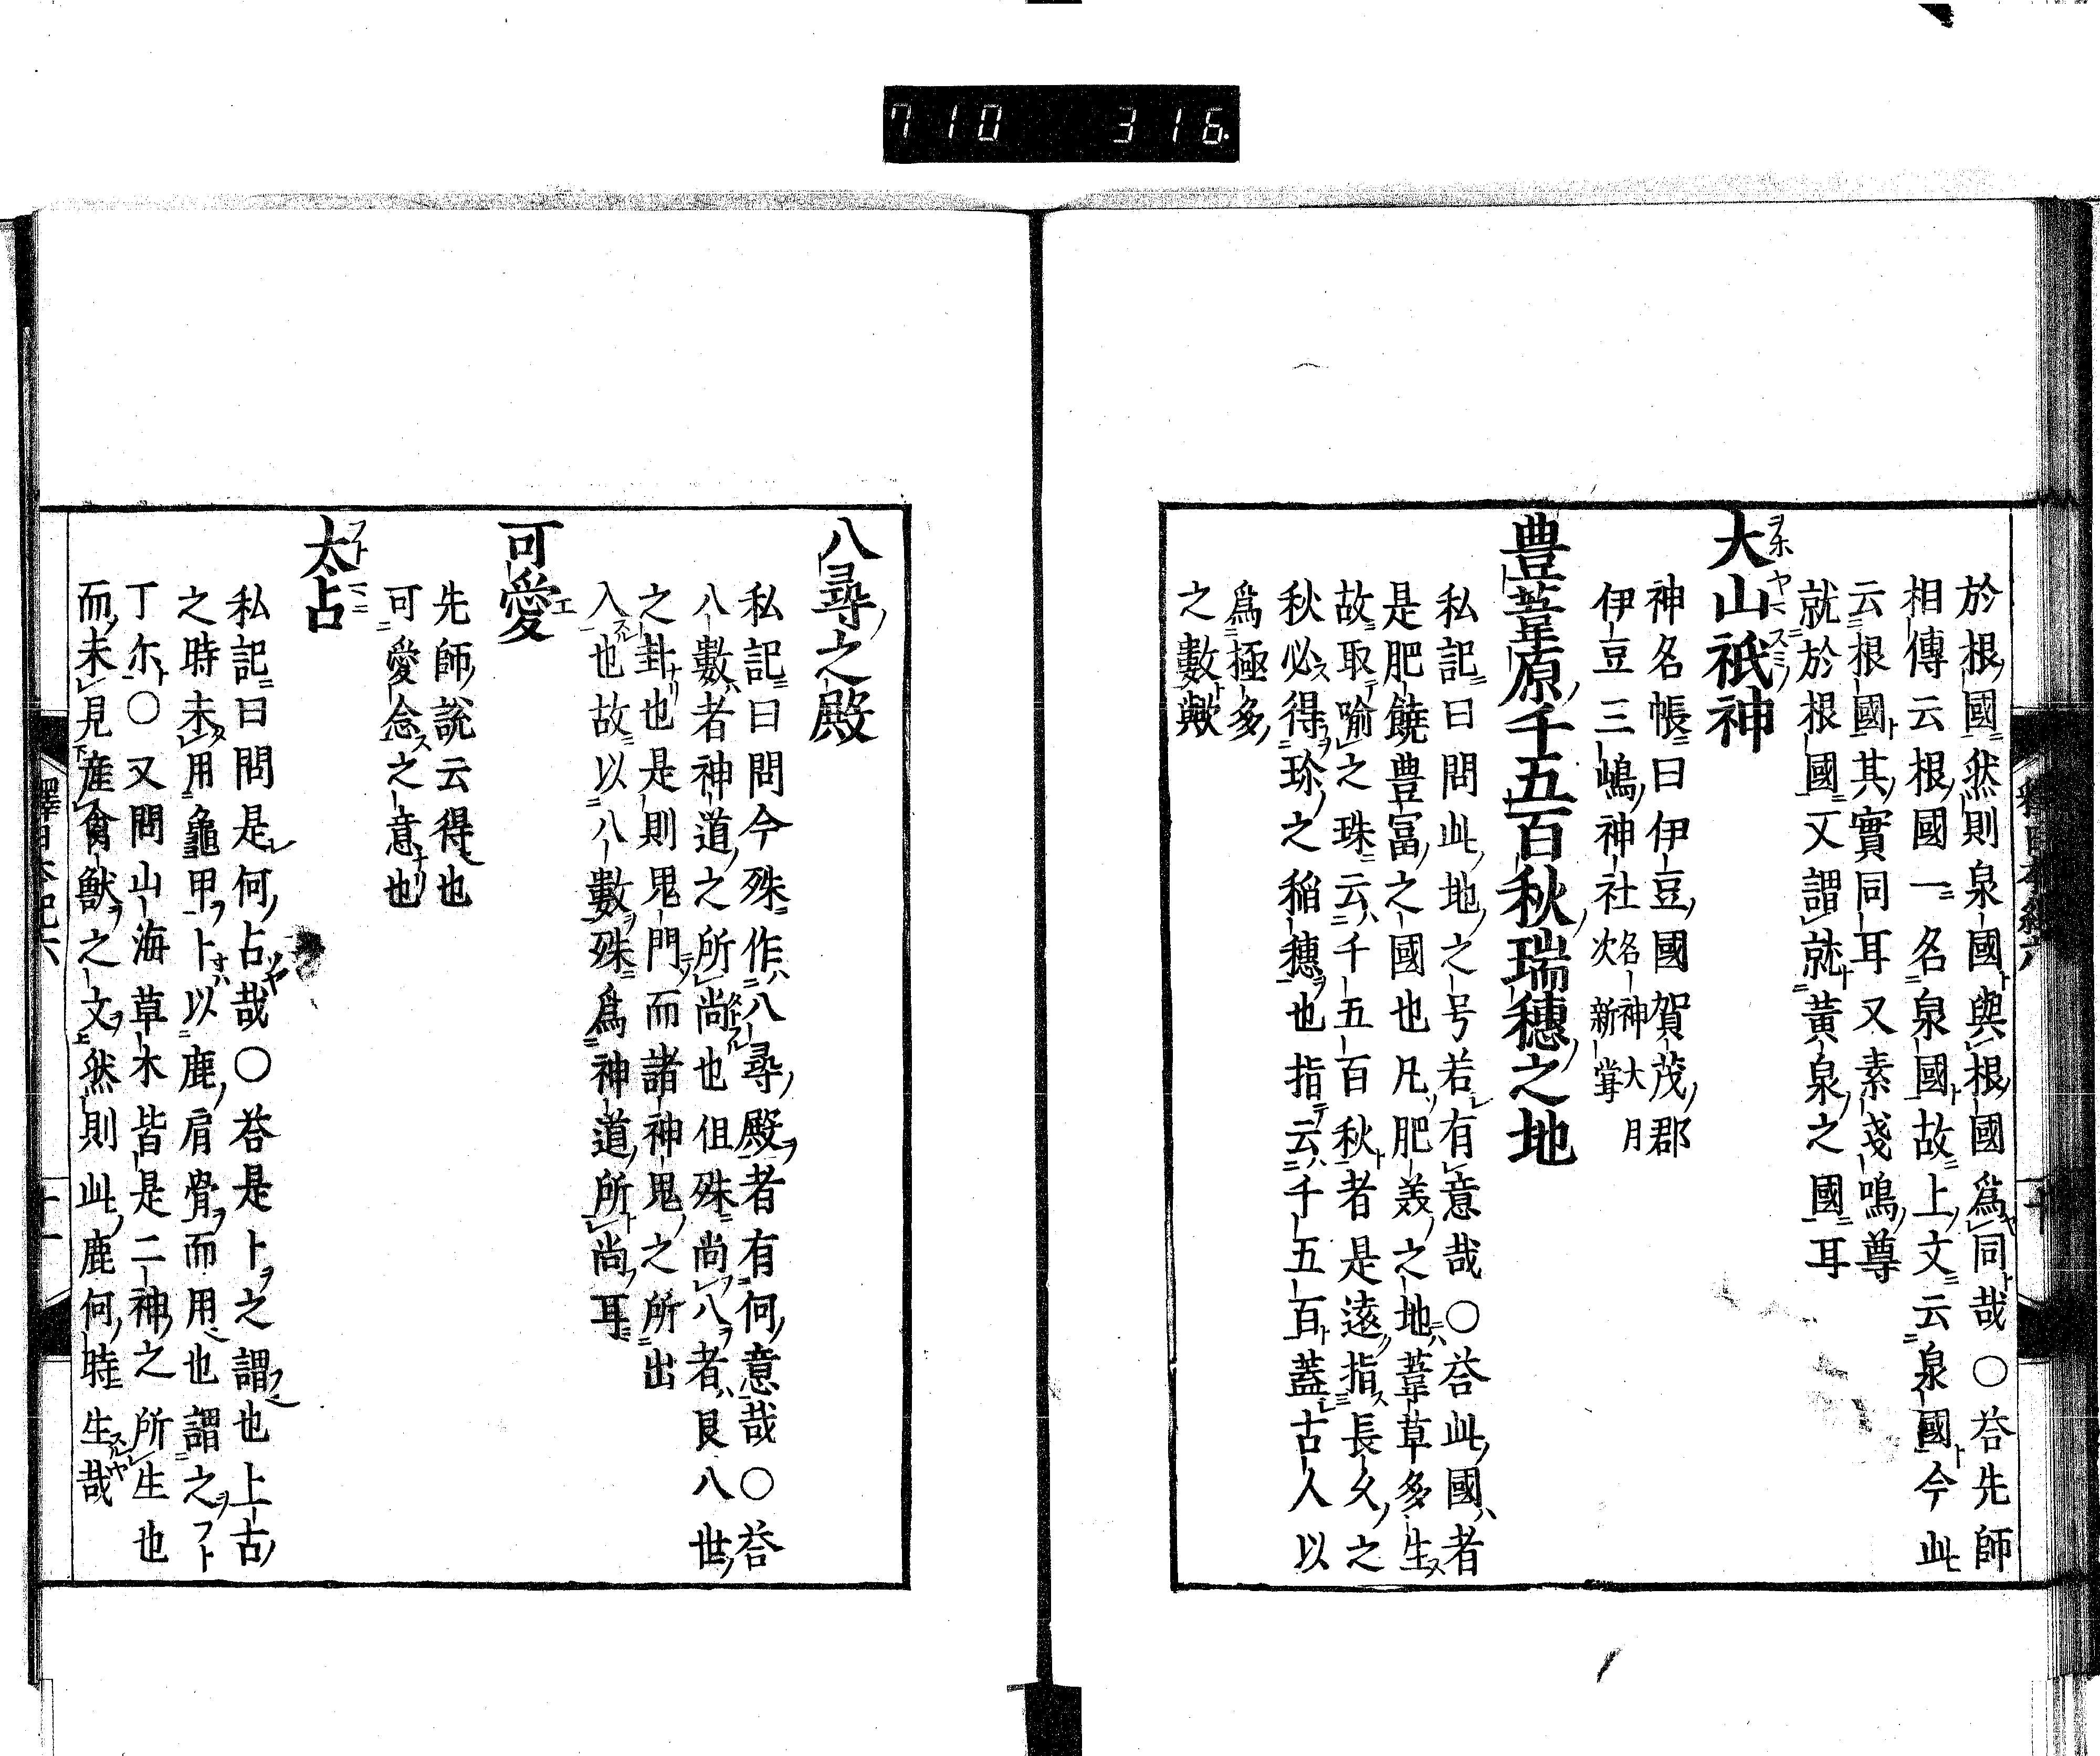 710 316
於根國然則泉國與根國爲同哉○荅先師
相傳云根國一名泉國故上文云泉國今此
云根國其實同耳又素戔鳴尊
就於根國又謂就黃泉之國耳
大山祇神
神名帳曰伊豆國賀茂郡
伊豆三嶋神社名神大月
次新甞
豊葦原千五百秋瑞穗之地
私記曰問此地之号若有意哉○荅此國者
是肥饒豊冨之國也凡肥美之地葦草多生
故取喻之珠云千五百秋者是遠指長久之
秋必得珍之稲穗也指云千五百蓋古人以
爲極多
之數歟
八尋之殿
私記曰問今殊作八尋殿者有何意哉○荅
八數者神道之所尚也但殊尚八者艮八世
之卦也是則鬼門而諸神鬼之所出
入也故以八數殊爲神道所尚耳
可愛
先師說云得也
可愛念之意也
太占
私記曰問是何占哉○荅是卜之謂也上古
之時未用龜甲卜以鹿肩骨而用也謂之フト
丁尓○又問山海草木皆是二神之所生也
而未見產禽獣之文然則此鹿何時生哉
釋日本紀六
十一